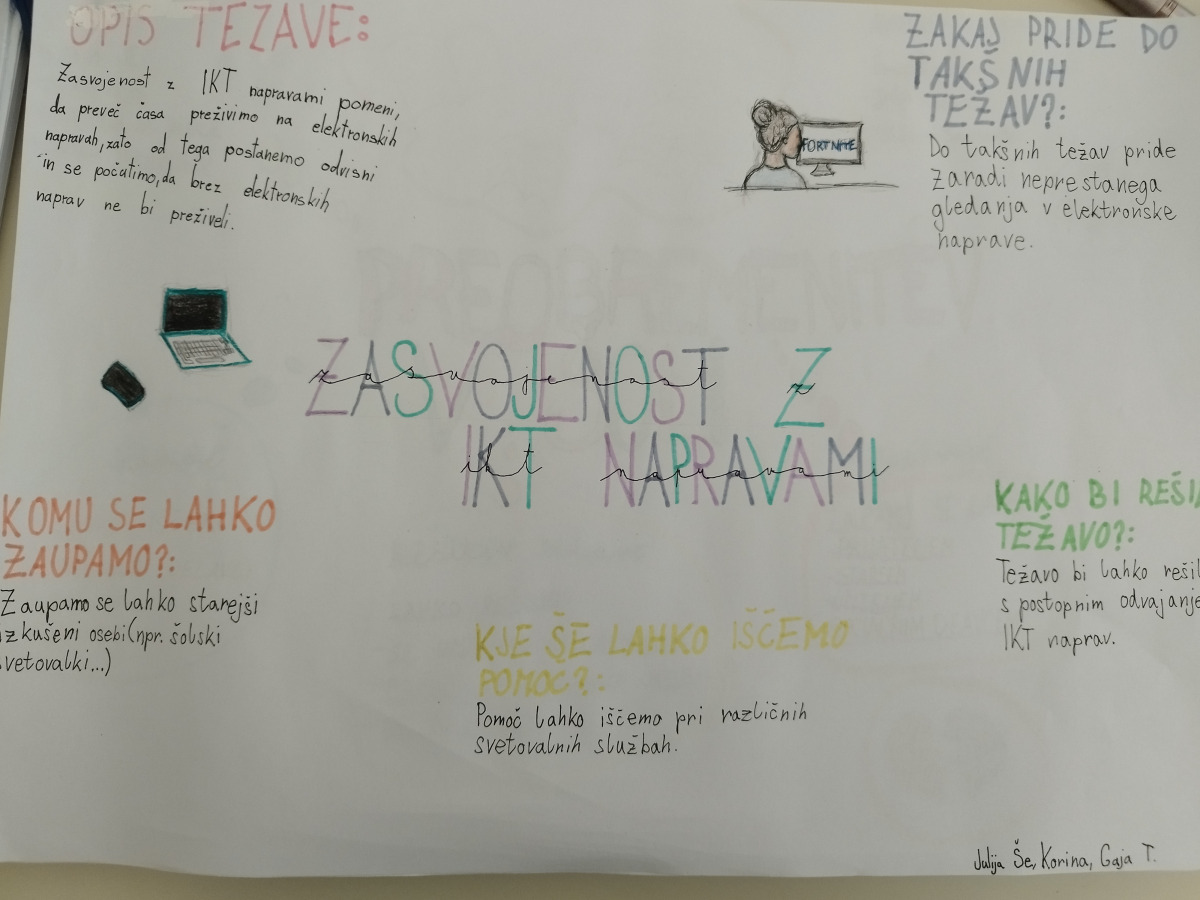 OPIS TEŽAVE:
Zasvojenost z IKT napravami pomeni,
da preveč časa preživimo na elektronskih
napravah, zato od tega postanemo odvisni
in se počutimo, da brez elektronskih
naprav ne bi preživeli.
ZAKAJ PRIDE DO
TAKŠNIH
TEŽAV?:
Do takšnih težav pride
zaradi neprestanega
gledanja v elektronske
naprave.
FORTNITE
ZASVOJENOST Z
zasvojenost z
IKT NAPRAVAMI
ikt napravami
KOMU SE LAHKO
ZAUPAMO?:
Zaupamo se lahko starejši
izkušeni osebi (npr. šolski
svetovalki...)
KJE ŠE LAHKO IŠČEMO
POMOČ?:
Pomoč lahko iščemo pri različnih
svetovalnih službah.
KAKO BI REŠI
TEŽAVO?:
Težavo bi lahko rešil
s postopnim odvajanje
IKT naprav.
Julija Še, Korina, Gaja T.